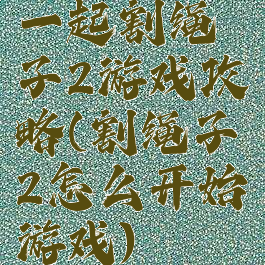 一起割绳
子2游戏攻
略(割绳子
2怎么开始
游戏)